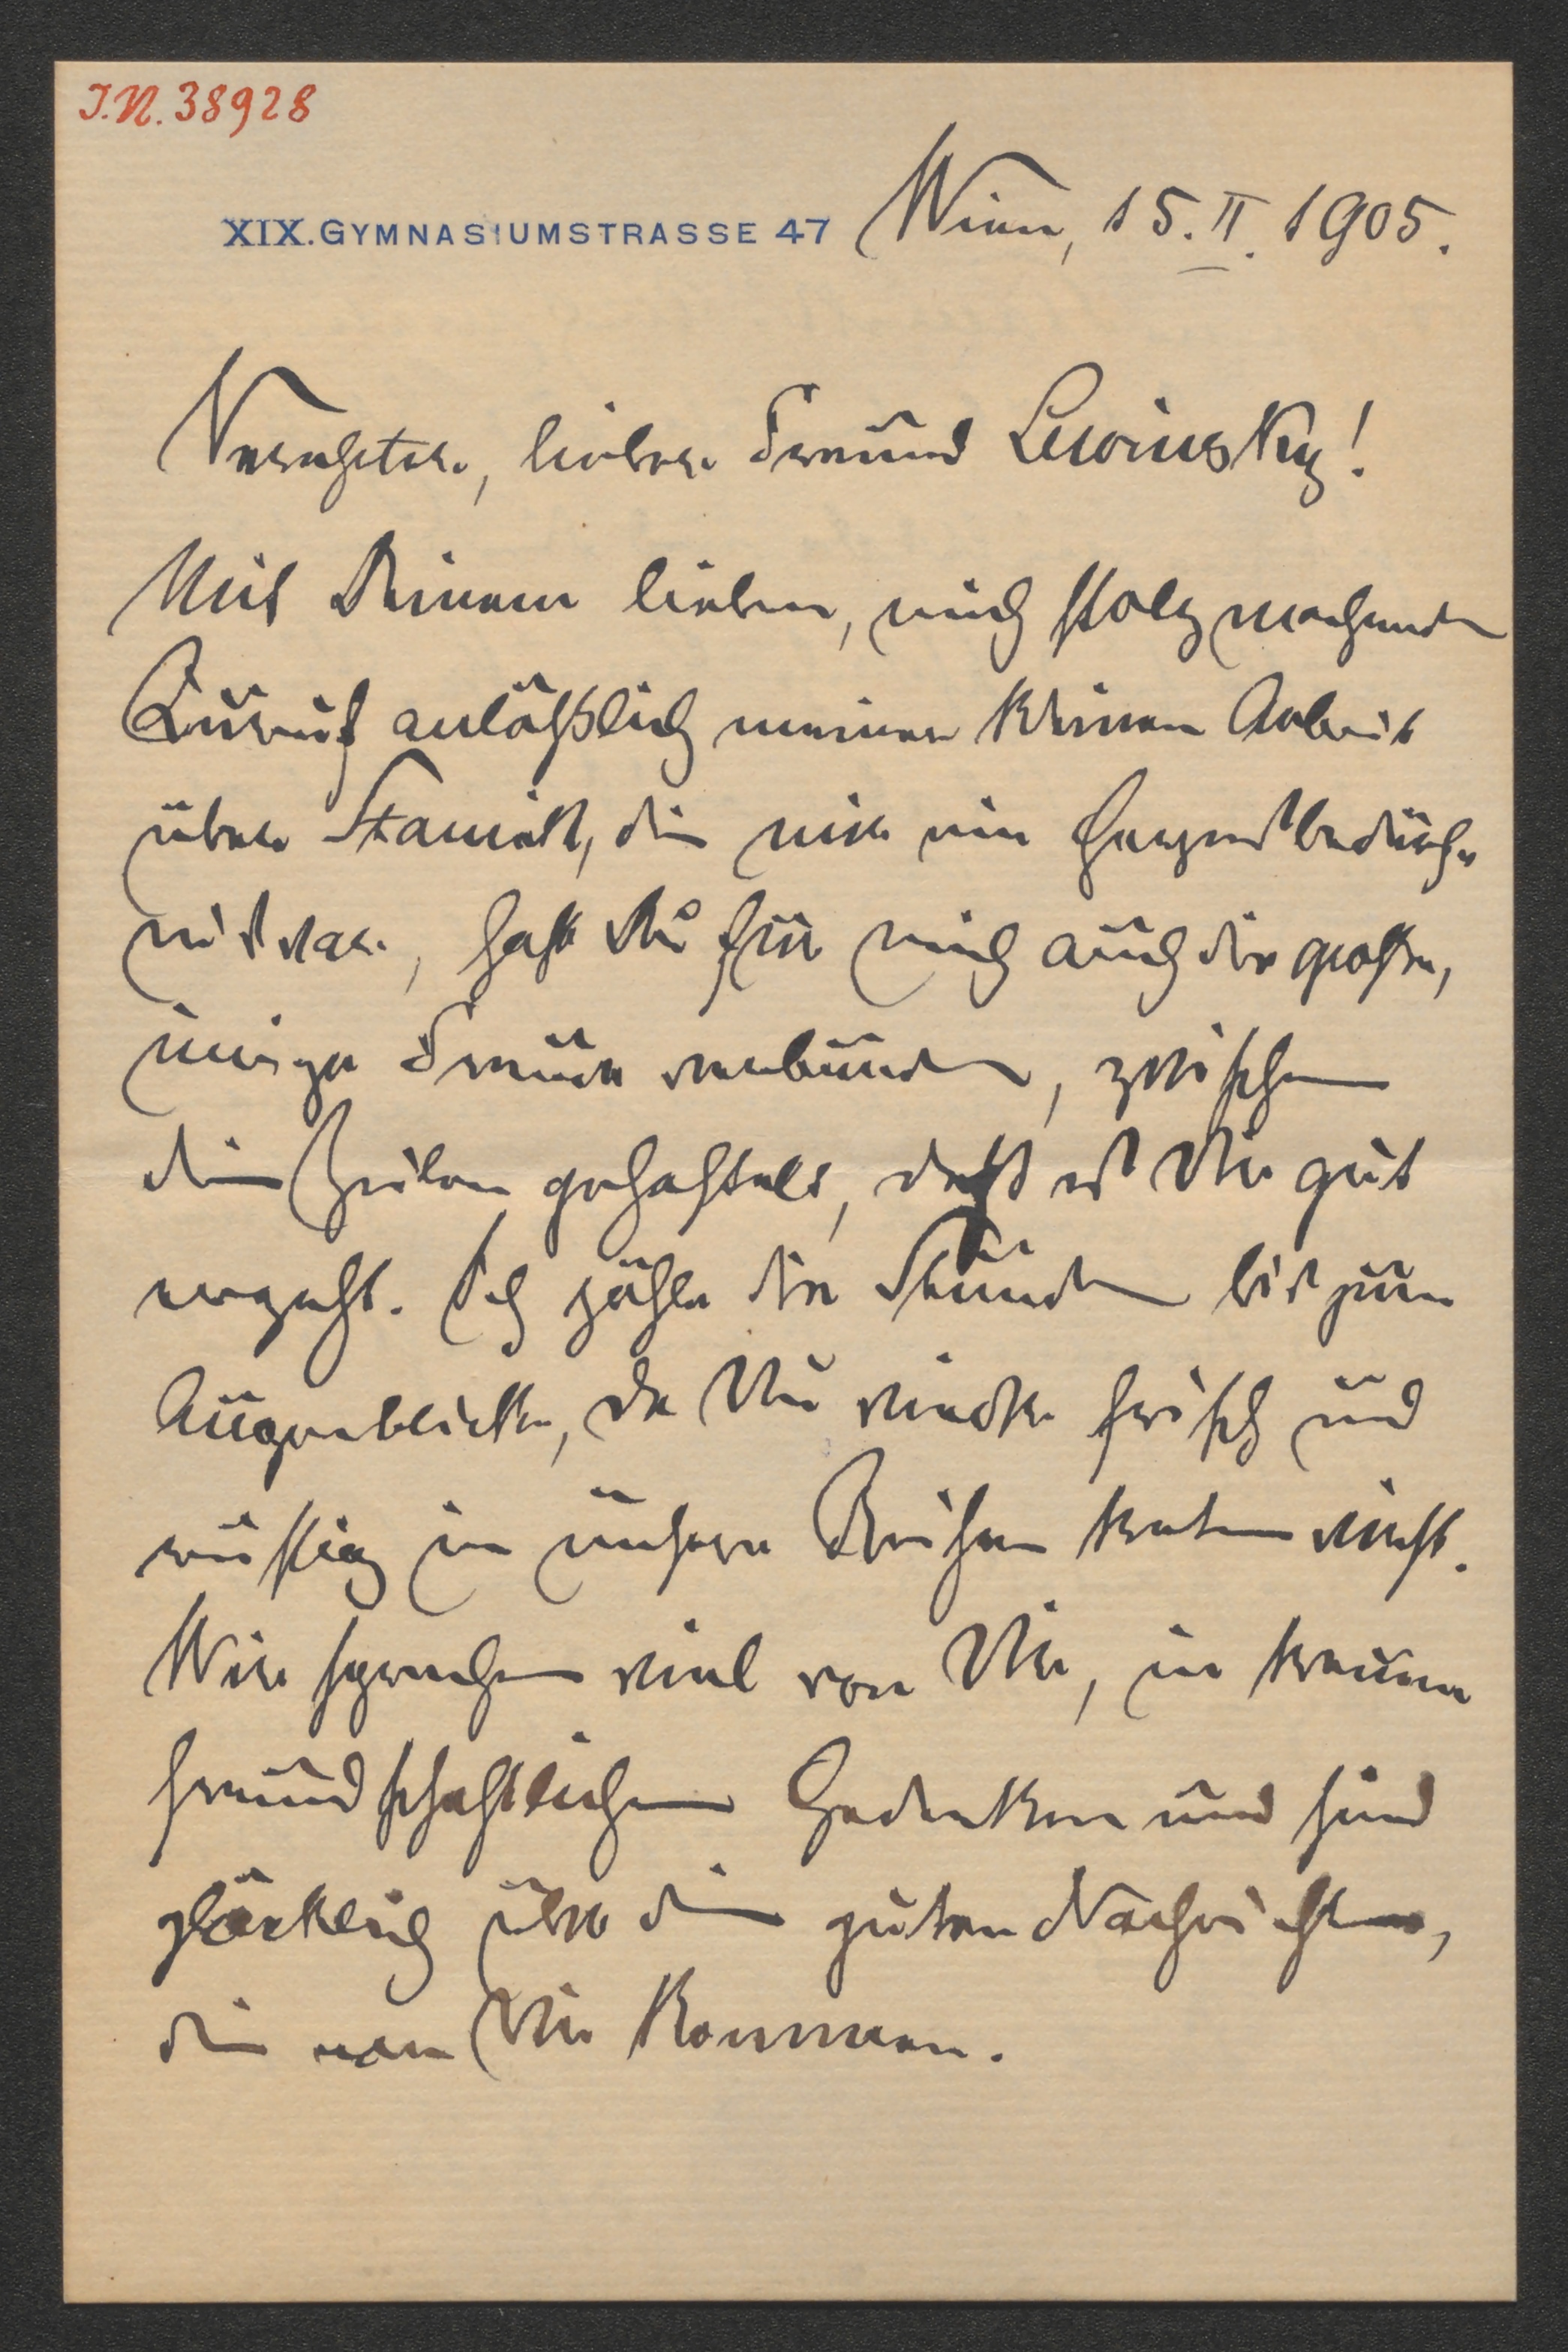 I.N. 38928
XIX. GYMNASIUMSTRASSE 47 Wien, 15. II. 1905.
Verehrter, lieber Freund Lewinsky!
Mit Deinem lieben, mich stolz machenden
Zuruf anläßlich meiner kleinen Arbeit
über, die mir ein Herzensbedürf-
nis war, hast Du für mich auch die große,
innige Freude verbunden, zwischen
den Zeilen, daß es Dir gut
ergeht. Ich zähle die Stunden bis zum
Augenblicke, da Du wieder frisch und
rüstig in unsere Reihen treten wirst.
Wir sprechen viel von Dir, in treuem
freundschaftlichen Gedenken und sind
glücklich über die guten Nachrichten,
die von Dir kommen.